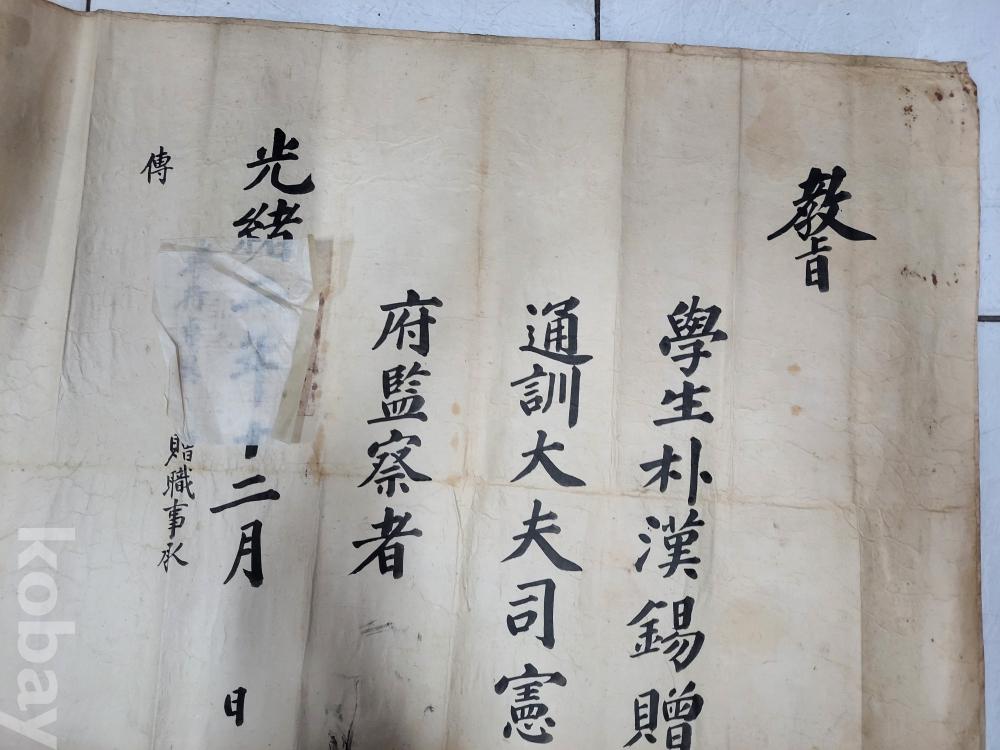 教旨
學生朴漢錫贈
通訓大夫司憲
府監察者
光緒
十二月 日
傳
贈職事承
kobay